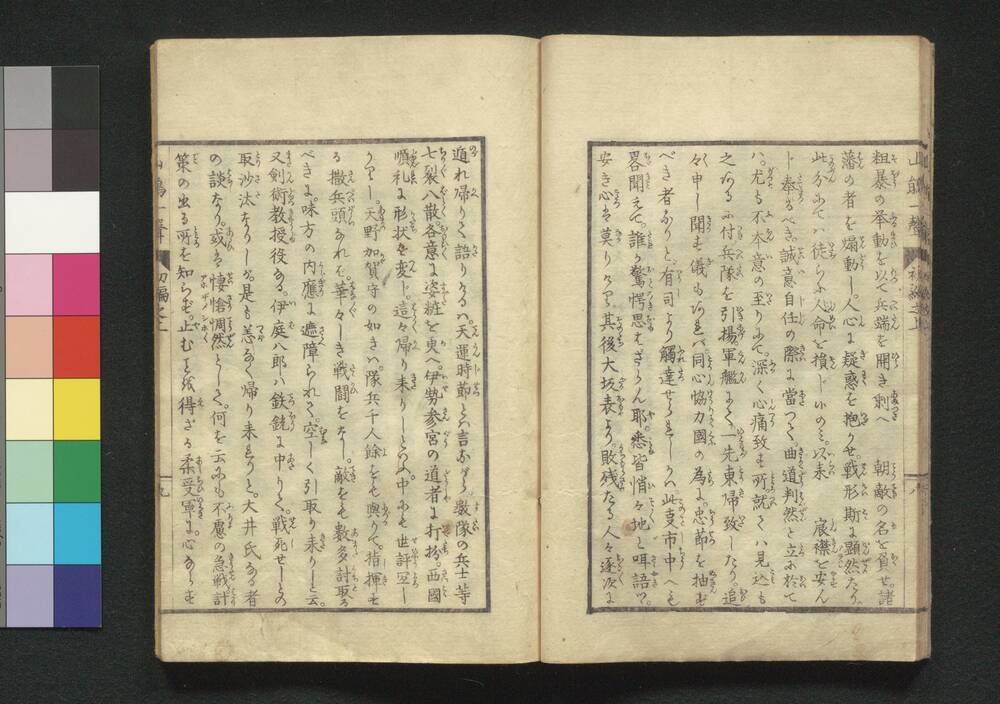 粗暴の挙動を以て兵端を開き剰へ 朝敵の名を負せ。諸
藩の者を煽動し。人心に疑惑を抱かせ。戦形斯に顕然たり。
此分にては徒らに人命を損じ候のミ。以来 宸襟を安ん
じ奉るべき。誠意自任の際に當つて。曲道判然と立に於て
ハ。尤も不本意の至りにて。深く心痛致す所就てハ見込も
之あるに付兵隊を引揚軍艦にて。一先東帰致したり。追
々申し聞す儀も候へ共同心協力國の為に。忠節を抽ず
べき者なりと。有司より觸達せられしかバ此㕝市中へも
畧聞えて。誰か驚愕思はざらん耶。悉皆悄々地と咡語つ。
安き心ハ莫りける。其後大坂表より。敗残たる人々逐次に
遁れ帰りて語りけるハ。天運時節とハ言ながら。数隊の兵士等
七裂八散。各意に姿粧を更へ。伊勢参宮の道者に打扮。西國
順礼に形状を変じ。這々帰り来りしといふ。中にも世評宜し
かりし。天野加賀守の如きハ。隊兵千人餘をも輿りて。指揮す
る撒兵頭なれば。華々しき戦闘をなし。敵をも數多討取る
べきに。味方の内應に遮障られて空しく引取り来りしと云。
又剣術教授役なる。伊庭八郎ハ鉄銃に中りて。戦死せしとの
取沙汰なりしが。是も恙なく帰り来れりと。大井氏なる者
の談なり。或ハ悽愴惆然として。何を云にも不慮の急戦計
策の出る所を知らず。止むことを得ざる柔受軍に。心あらず
初編之上
九